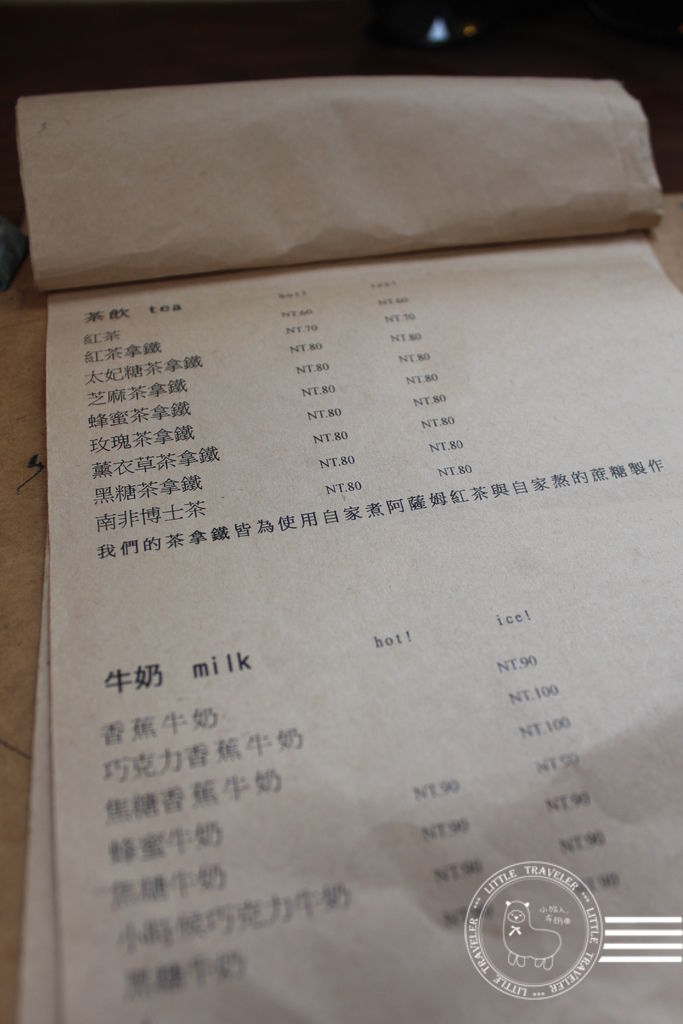 茶飲 tea hot! ice!
紅茶 NT.60 NT.60
紅茶拿鐵 NT.70 NT.70
太妃糖茶拿鐵 NT.80 NT.80
芝麻茶拿鐵 NT.80 NT.80
蜂蜜茶拿鐵 NT.80 NT.80
玫瑰茶拿鐵 NT.80 NT.80
薰衣草茶拿鐵 NT.80 NT.80
黑糖茶拿鐵 NT.80 NT.80
南非博士茶 NT.80 NT.80
我們的茶拿鐵皆為使用自家煮阿薩姆紅茶與自家熬的蔗糖製作
牛奶 milk hot! ice!
香蕉牛奶 NT.90
巧克力香蕉牛奶 NT.100
焦糖香蕉牛奶 NT.100
蜂蜜牛奶 NT.90 NT.90
焦糖牛奶 NT.90 NT.90
小時候巧克力牛奶 NT.90 NT.90
黑糖牛奶
LITTLE TRAVELER ... LITTLE TRAVELER ... LITTLE TRAVELER ...